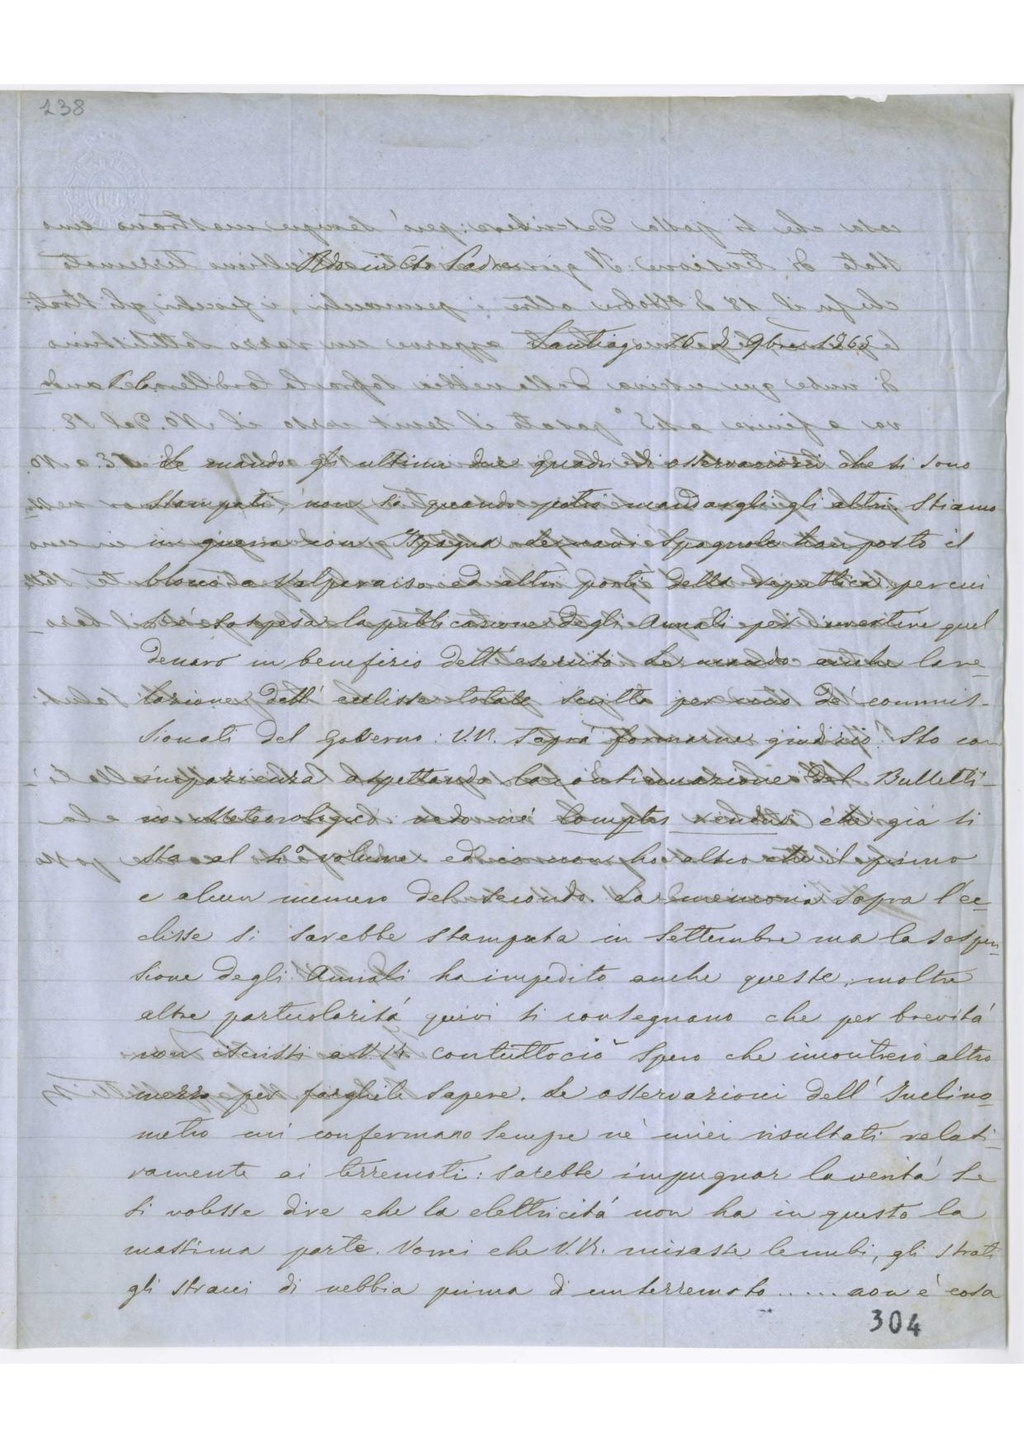 238
Rdo in Cto Padre
Santiago 16 di 9bre 1865
P. C.
Le mando gli ultimi due quadri di osservazioni che si sono
stampati, non so quando potro mandargli gli altri. Stiamo
in guerra con Ispagna le navi Spagnole han posto il
bloco a Valparaiso ed altri porti della republica per cui
si è sospesa la publicazione degli Annali per invertire quel
denaro in benefizio dell' esercito. Le mando anche la re-
lazione dell' eclisse totale scritta per uno de' commis-
sionati del Governo: V.R. saprà formarne giudizio. Sto con
impazienza aspettando la continuazione del Bulletti-
no Meteorologico: vedo nè Comptes rendus che già si
sta al 4º volume ed io non ho altro che il primo
e alcun numero del secondo. La memoria sopra l'ec-
clisse si sarebbe stampata in settembre ma la sospen-
sione degli Annali ha impedito anche queste, moltre
altre particolarità quivi si consegnano che per brevità
non iscrissi a V.R. contuttociò spero che incontrerò altro
mezzo per farglile sapere. Le osservazioni dell' Inclino-
metro mi confermano sempre nè miei risultati relati-
vamente ai terremoti: sarebbe impugnar la verità se
si volesse dire che la elettricità non ha in questo la
massima parte. Vorrei che V.R. mirasse le nubi, gli strati
gli stracci di nebbia prima di un terremoto ..... non è cosa
304